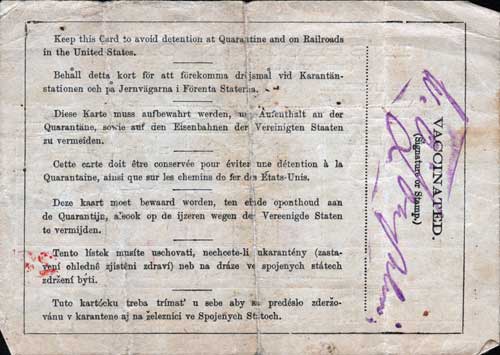 Keep this Card to avoid detention at Quarantine and on Railroads
in the United States.
Behåll detta kort för att förekomma dröjsmål vid Karantän-
stationen och på Jernvägarna i Förenta Staterna.
Diese Karte muss aufbewahrt werden, um Aufenthalt an der
Quarantäne, sowie auf den Eisenbahnen der Vereinigten Staaten
zu vermeiden.
Cette carte doit être conservée pour éviter une détention à la
Quarantaine, ainsi que sur les chemins de fer des États-Unis.
Deze kaart moet bewaard worden, ten einde oponthoud aan
de Quarantijn, alsook op de ijzeren wegen der Vereenigde Staten
te vermijden.
Tento lístek musíte uschovati, nechcete-li ukarantény (zasta-
vení ohledně zjistěni zdraví) neb na dráze ve spojených státech
zdržení býti.
Tuto kartôcku treba trímať u sebe aby sa predešlo zderžo-
vánu v karantene aj na železnici ve Spojených Štátoch.
VACCINATED.
(Signature or Stamp.)